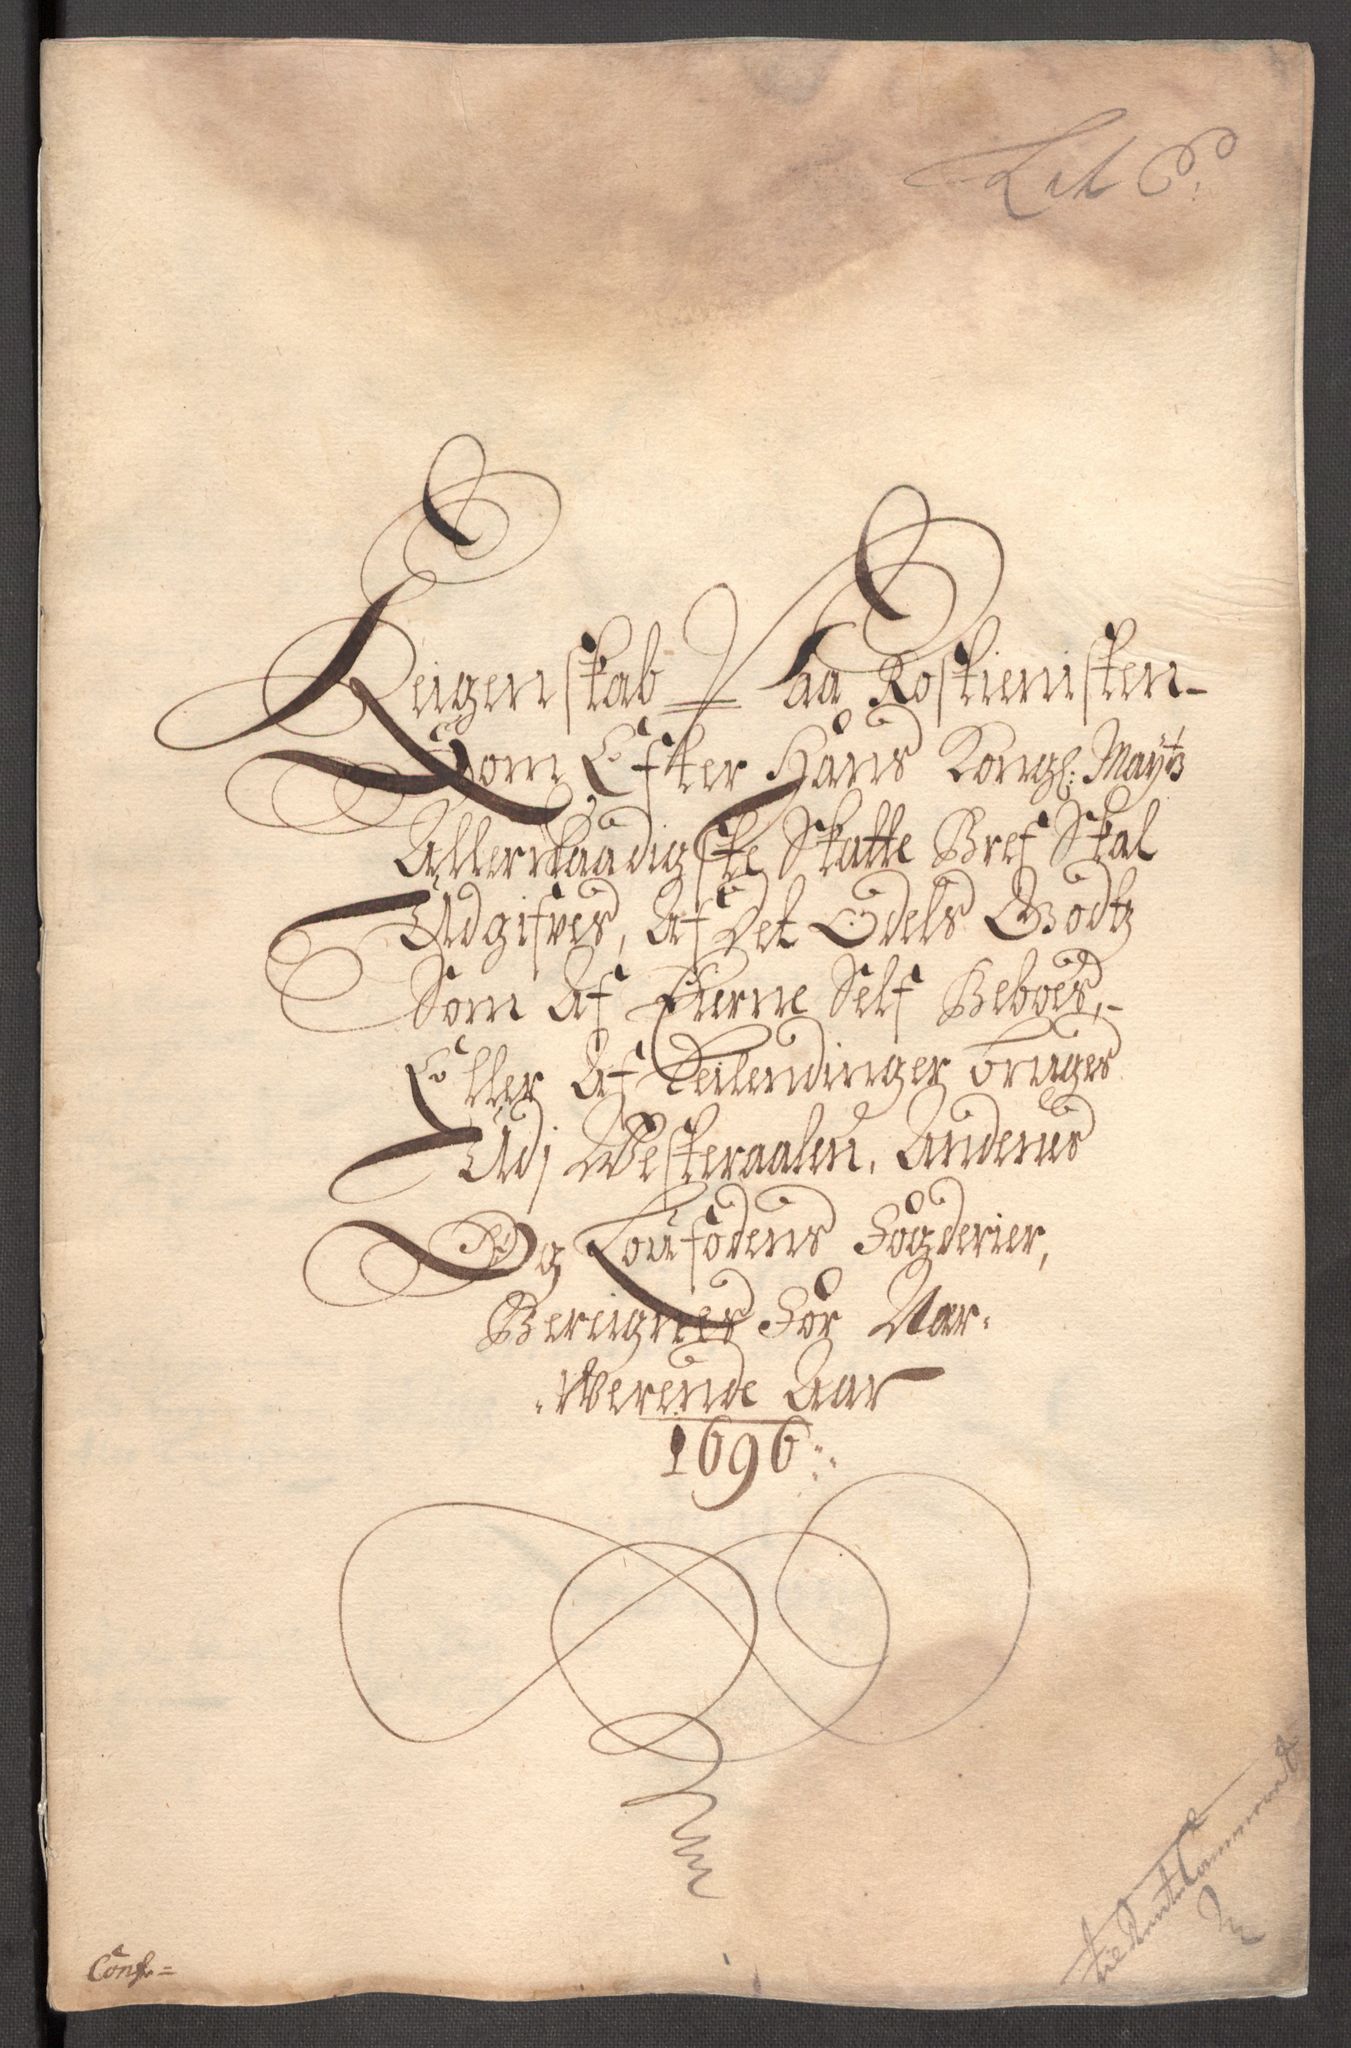 Lit P:
Reigenskab Paa Rostienisten
Som Efter Hans Kongl: Mayts
Allernaadigste Skatte Bref Skal
Udgifves, Af Det Odels Godtz
Som Af Eierne Self Beboes,
Eller Af Leilendinger bruges
Udj Westeraalen, Andenes
Og Loufodens Fogderier,
Bereignet For Nær-
werende Aar
1696
Conf=